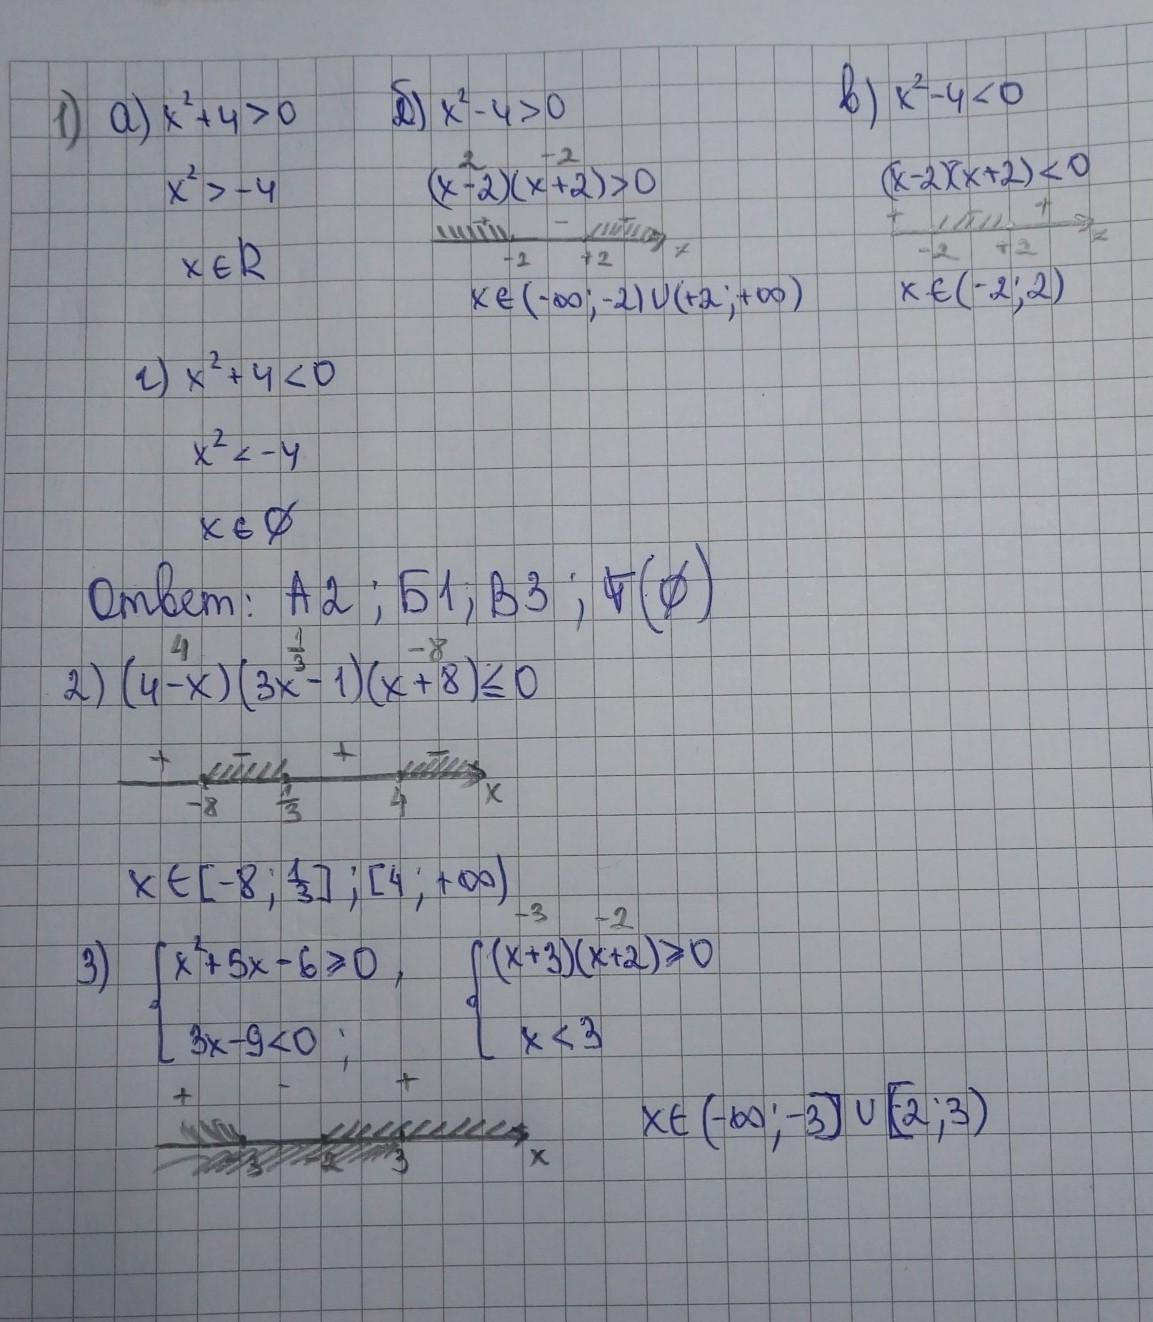 1) а) x²+4>0 б) x²-4>0 в) x²-4<0
2 -2
x²>-4 (x-2)(x+2)>0 (x-2)(x+2)<0
+ - + + - +
-2 +2 x -2 +2 x
x∈R x∈(-∞;-2)∪(+2;+∞) x∈(-2;2)
г) x²+4<0
x²<-4
x∈∅
Ответ: А2; Б1; В3; (∅)
4 1/3 -8
2) (4-x)(3x-1)(x+8)≤0
+ - + -
-8 1/3 4 x
x∈[-8; 1/3]; [4; +∞)
-3 -2
3) { x²+5x-6≥0, { (x+3)(x+2)≥0
3x-9<0; x<3
+ - +
-3 -2 3 x
x∈(-∞;-3]∪[-2;3)